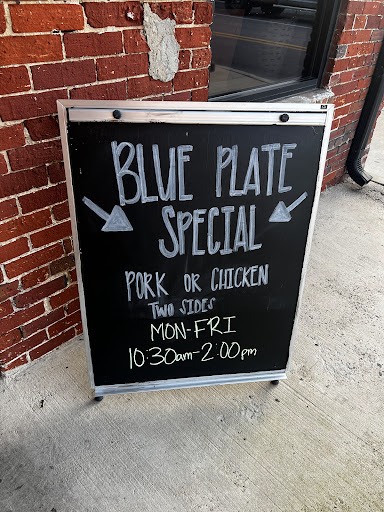 BLUE PLATE
SPECIAL
PORK OR CHICKEN
TWO SIDES
MON-FRI
10:30am-2:00pm